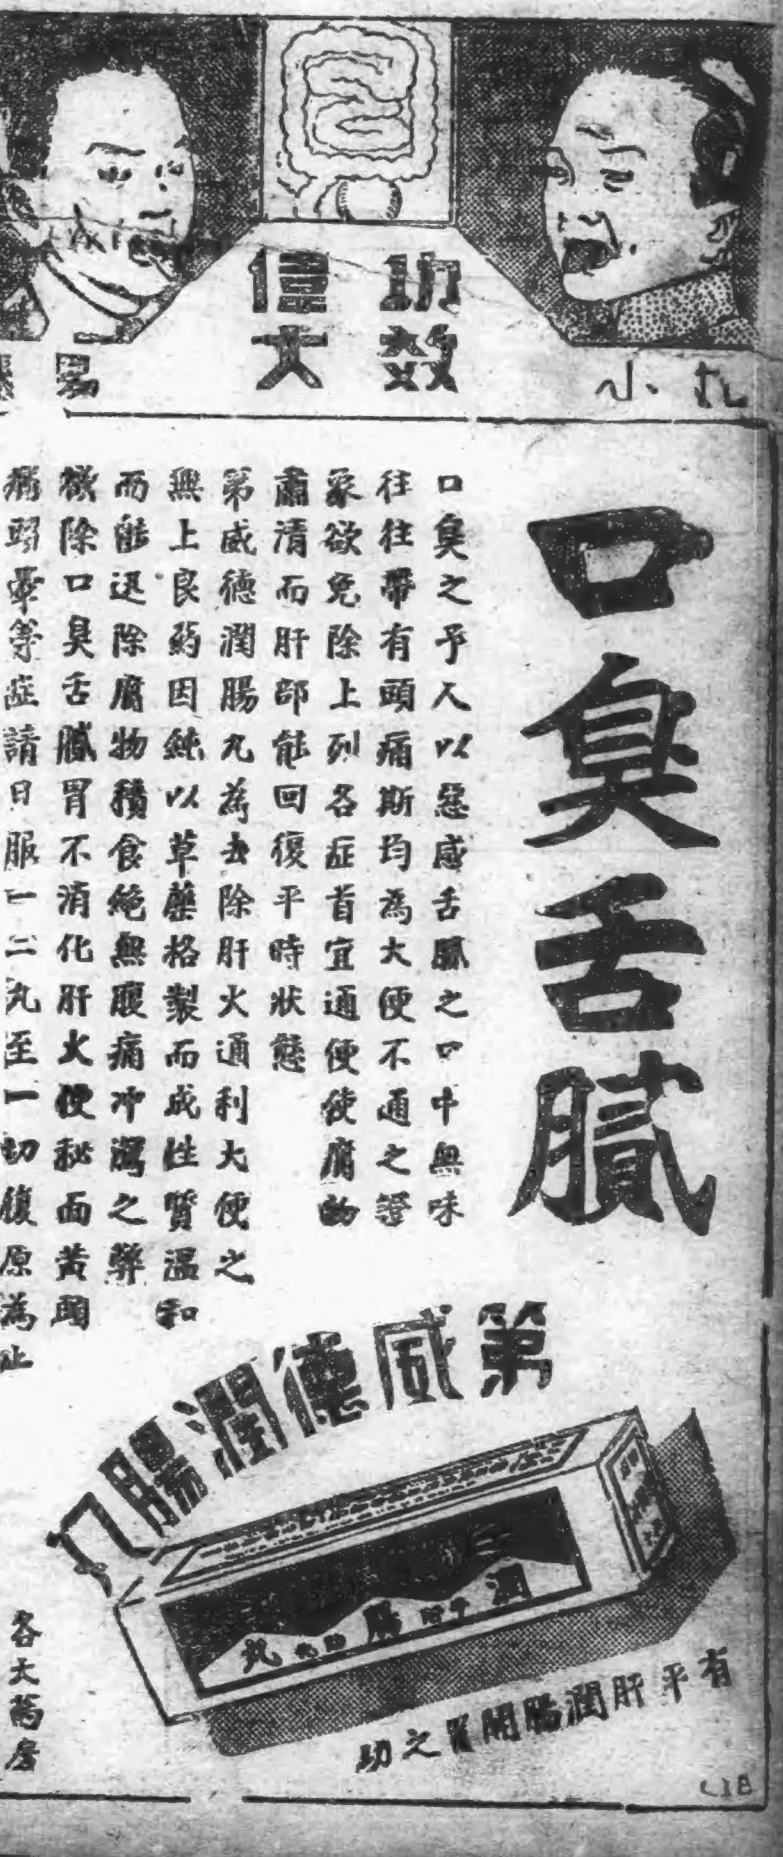 功效
偉大
小丸
易
口臭舌膩
口臭之予人以惡感舌膩之口中無味
往往帶有頭痛斯均為大便不通之證
象欲免除上列各症首宜通便使腐物
肅清而肝部能回復平時狀態
第威德潤腸丸為去除肝火通利大便之
無上良葯因純以草藥格製而成性質溫和
而能迅除腐物積食絕無腹痛冲瀉之弊
欲除口臭舌膩胃不消化肝火便秘面黃頭
痛頭暈等症請日服一二丸至一切復原為止
第威德潤腸丸
潤腸丸
有平肝潤腸開胃之功
各大葯房